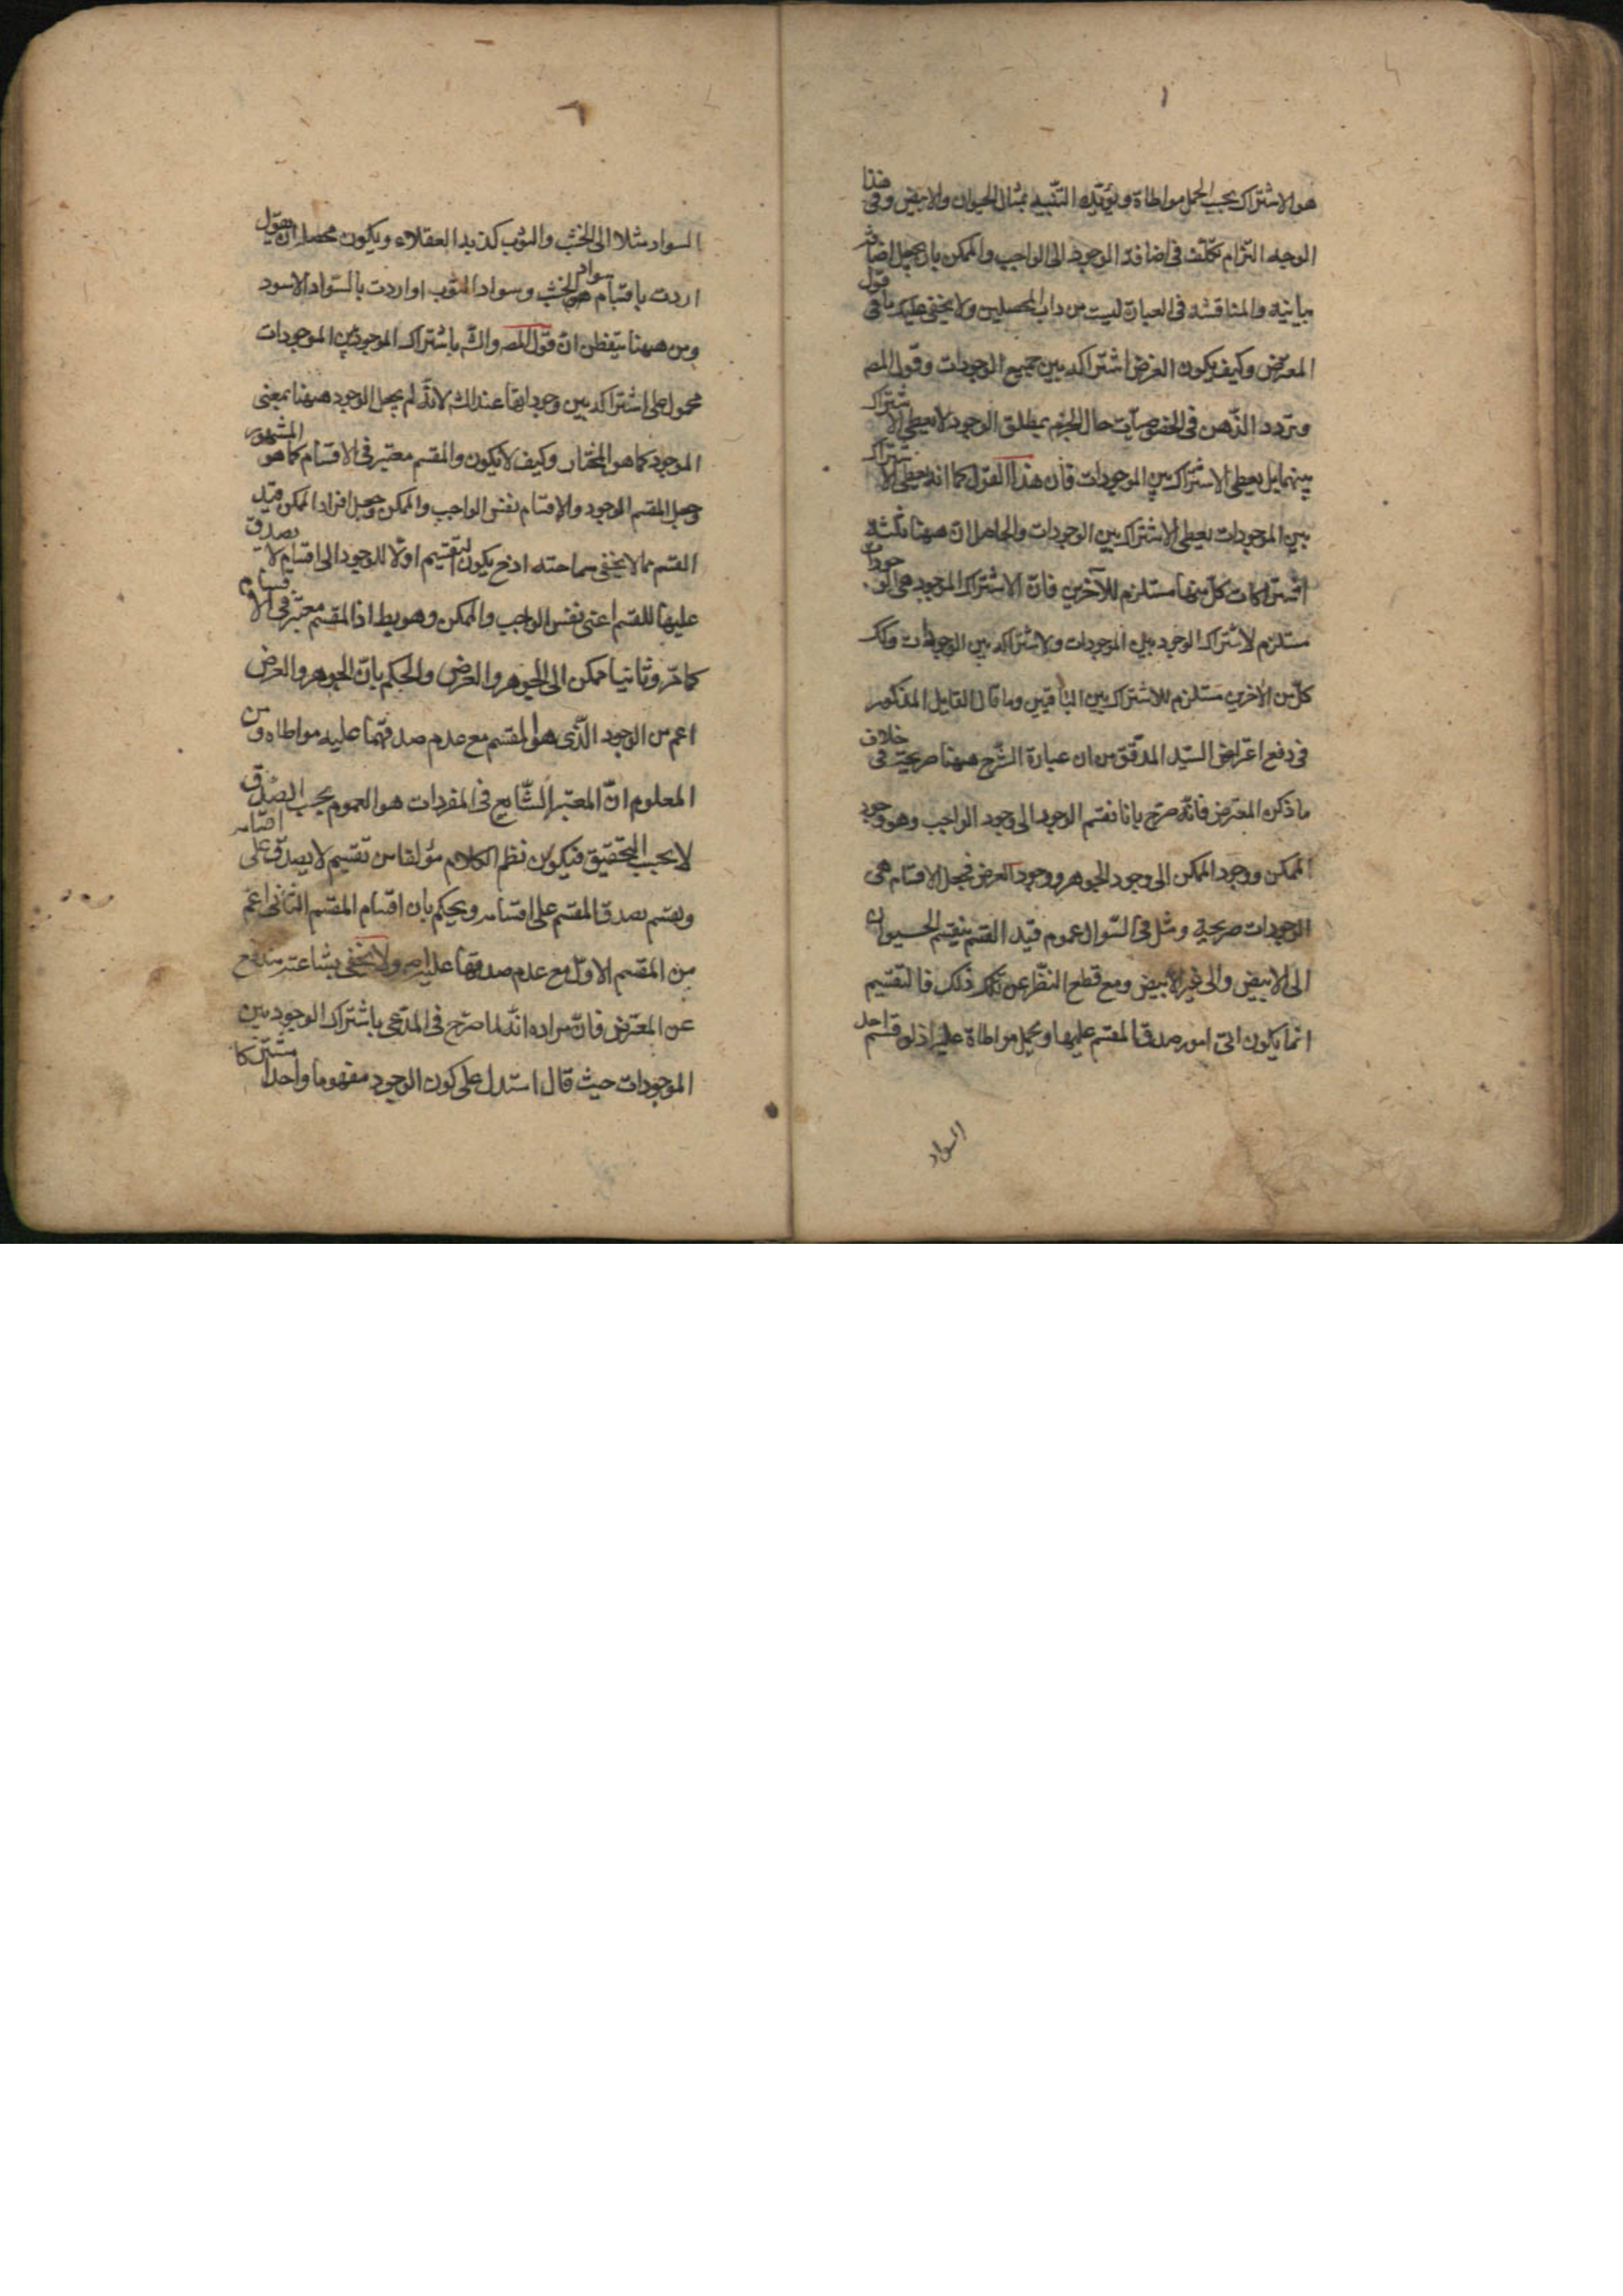 هو الاشتراك بحسب الحمل مواطاة ويؤيّده التقييد بمثال الحيوان والابيض وفى هذا
الوجه التزام تكلّف فى اضافة الموجود الى الواجب والممكن بان يجعل اضافته
بيانية والمناقشة فى العبارة ليست من داب المحصلين ولا يخفى عليك ما فى قول
المعترض وكيف يكون الغرض اشتراكه بين جميع الوجودات وقول المص
وتردد الذهن فى الخصوصيات حال الجزم بمطلق الوجود لا يعطى الاشتراك
بينهما بل يعطى الاشتراك بين الموجودات فان هذا القول كما انه يعطى الاشتراك
بين الموجودات يعطى الاشتراك بين الوجودات والحاصل ان ههنا ثلثة
اشتراكات كلّ منها مستلزم للآخرين فانّ الاشتراك الموجود هى الوجودات
مستلزم لاشتراك الوجود بين الموجودات ولاشتراكه بين الوجودات وكك
كلّ من الآخرين مستلزم للاشتراك بين الباقيين وما قال القايل المذكور
فى دفع اعتراض السيّد المدقّق من ان عبارة الشرح ههنا صريحة فى خلاف
ما ذكره المعترض فانّه صرّح بانا نقسم الوجود الى وجود الواجب وهو وجود
الممكن ووجود الممكن الى وجود الجوهر ووجود العرض فجعل الاقسام هى
الوجودات صريحة ومثل فى السّوال عموم قيد القسم بتقسيم الحيوان
الى الابيض والى غير الابيض ومع قطع النظر عن ذلك فالتقسيم
انما يكون الى امور صدق المقسم عليها ويحمل مواطاة عليها اذ لو قسم احد
السواد
٢
السواد مثلا الى الخشب والثوب كذبه العقلاء ويكون محصله ان يقول
اردت باقسام سواد الخشب وسواد الثوب او اردت بالسّواد الاسود
ومن ههنا يتفطن انّ قول المص والش باشتراك الموجود بين الموجودات
محمول على اشتراكه بين وجوداتها عند الش لانّه لم يجعل الوجود ههنا بمعنى
الموجود كما هو المختار وكيف لا يكون والمقسم معتبر فى الاقسام كما هو المشهور
وجعل المقسم الوجود والاقسام نفس الواجب والممكن وجعل افراد الممكن قيد
القسم مما لا يخفى سماجته اذ ح يكون التقسيم اوّلا للوجود الى اقسام لا يصدق
عليها المقسم اعنى نفس الواجب والممكن وهو بط اذ المقسم معتبر فى الاقسام
كما مرّ وثانيا ممكن الى الجوهر والعرض والحكم بانّ الجوهر والعرض
اعم من الوجود الّذى هو المقسم مع عدم صدقهما عليه مواطاه ومن
المعلوم انّ المعتبر الشّايع فى المفردات هو العموم بحسب الصدق
لا بحسب التحقيق فيكون نظم الكلام مؤلفا من تقسيم لا يصدق على اقسامه
وتقسم يصدق المقسم على اقسامه ويحكم بان اقسام المقسم الثانى اعم
من المقسم الاوّل مع عدم صدقها عليه ولا يخفى بشاعته مندفع
عن المعترض فانّ مراده انّه لما صرّح فى المدّعى باشتراك الوجود بين
الموجودات حيث قال استدل على كون الوجود مفهوما واحدا مشتركا